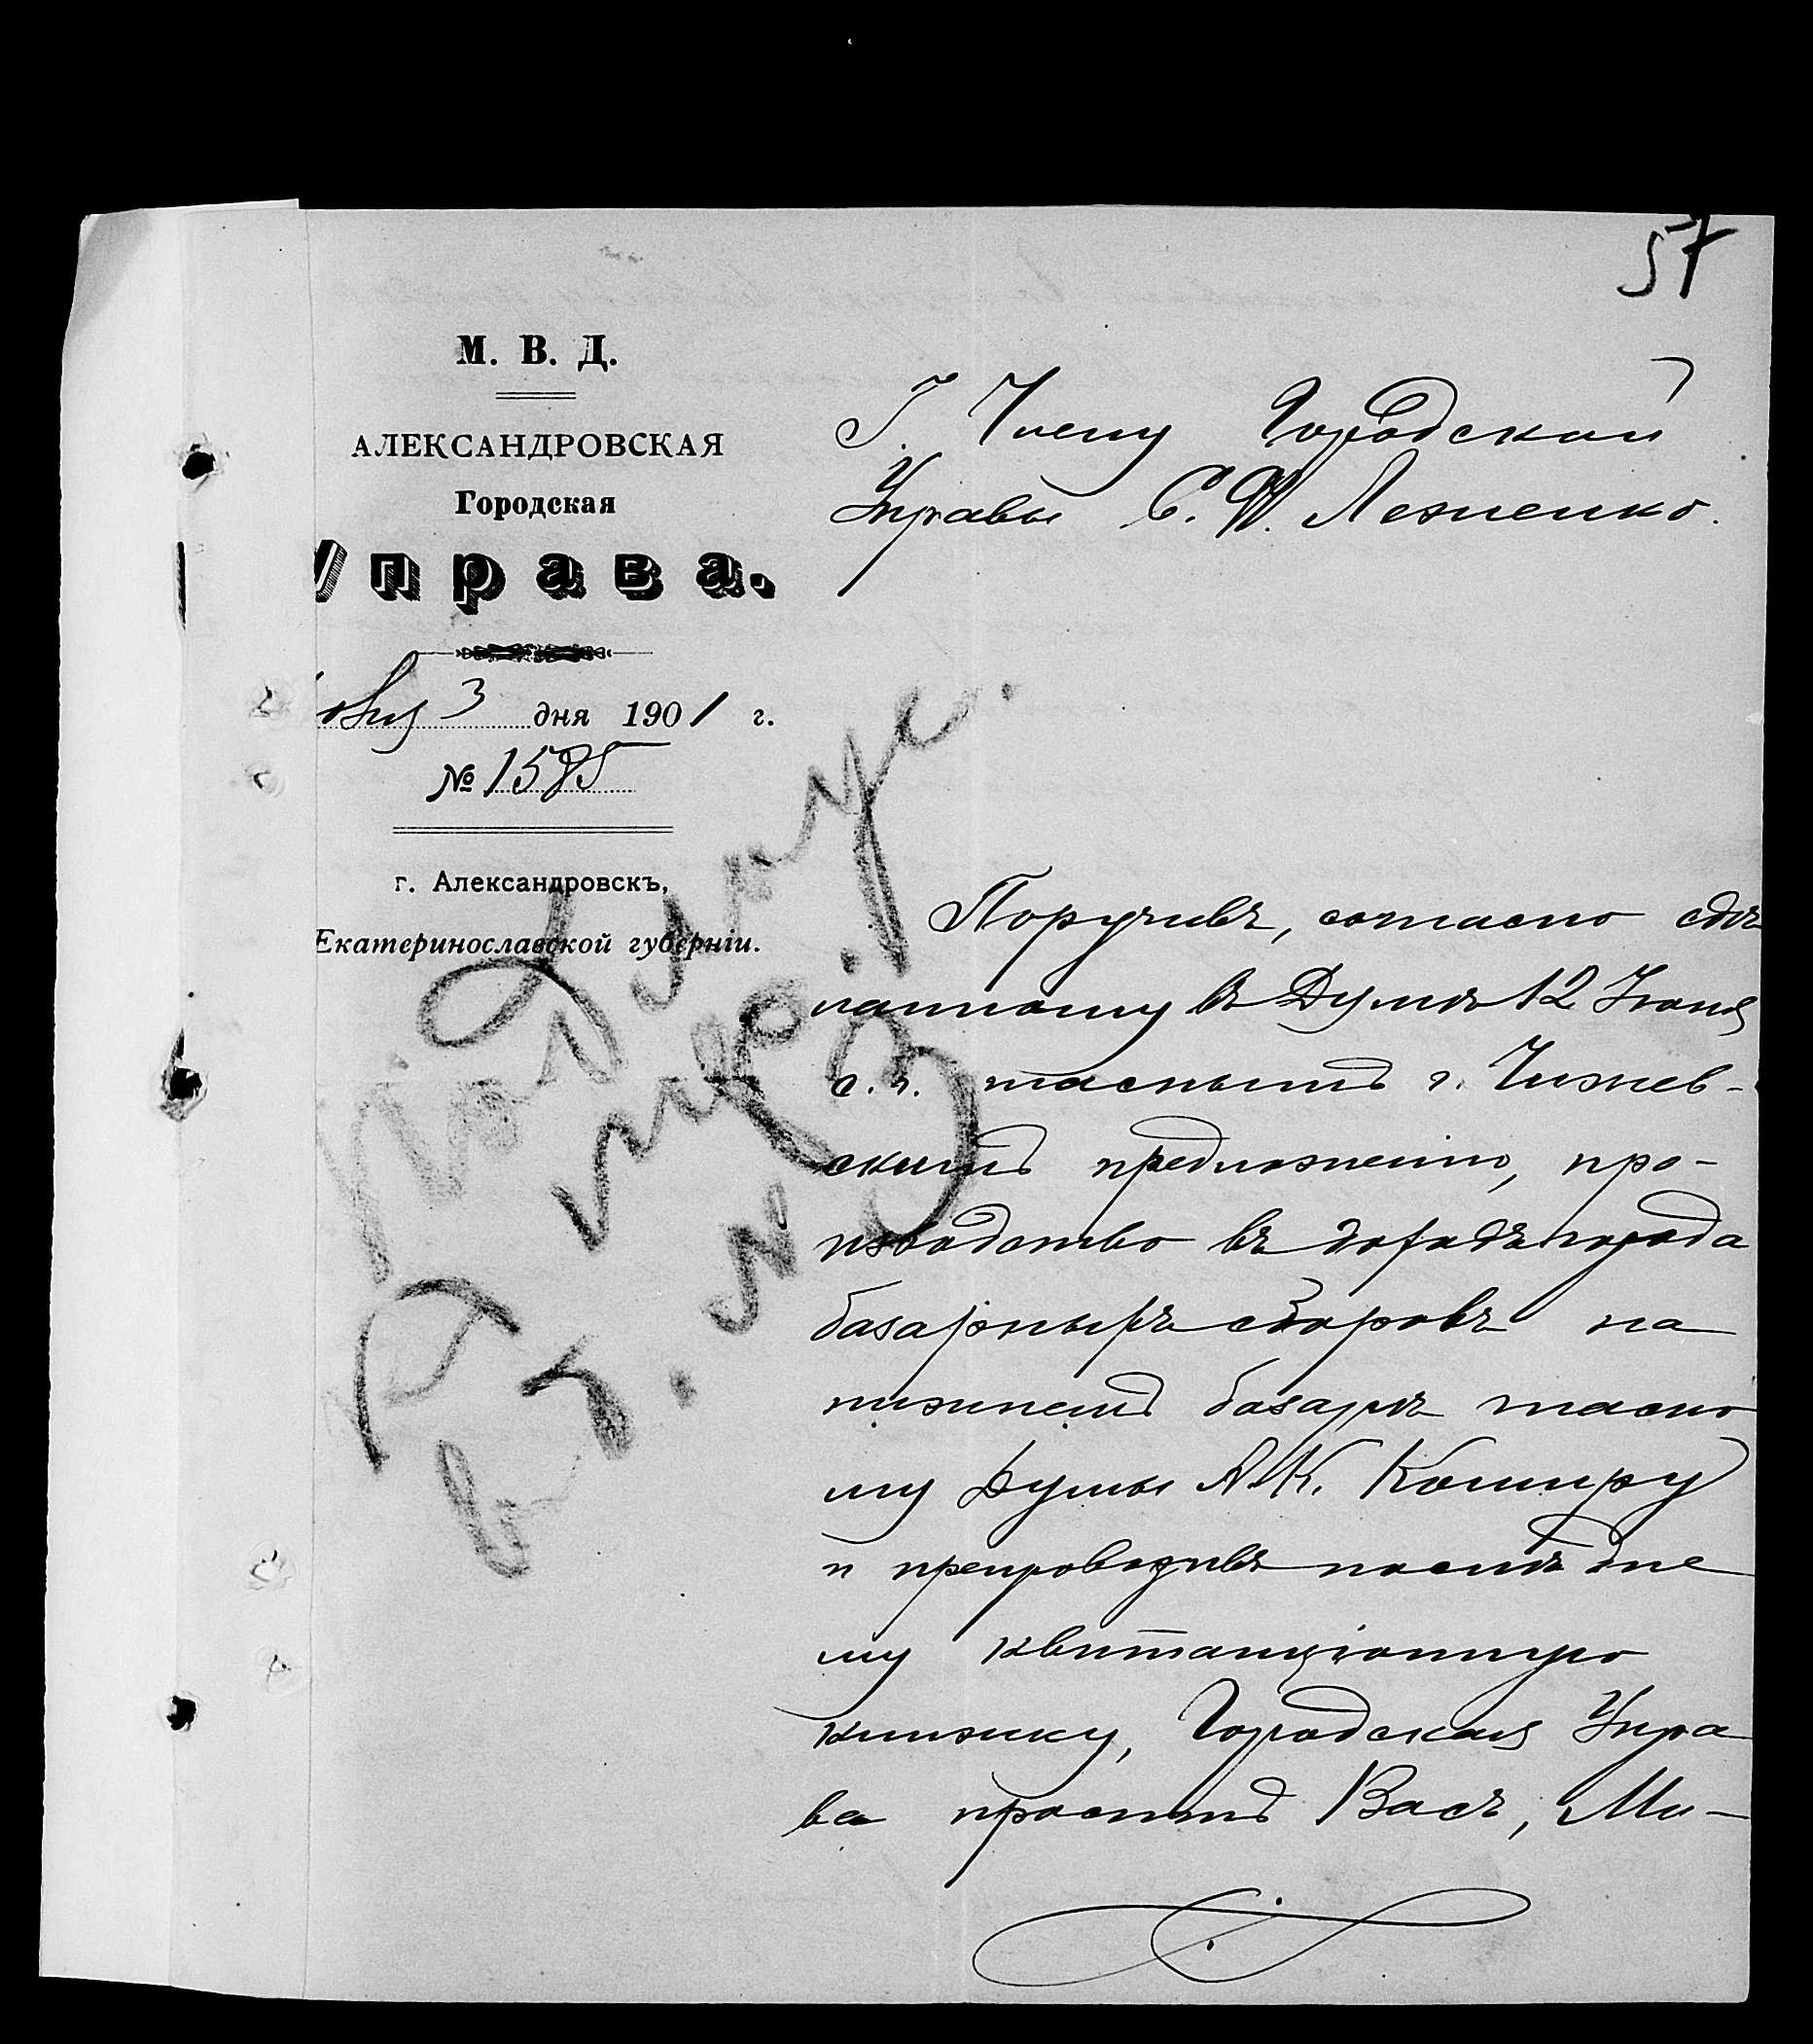 57
М. В. Д.
АЛЕКСАНДРОВСКАЯ
Городская
Управа.
3 дня 1901 г.
№ 1585
г. Александровскъ,
Екатеринославской губерніи.
Г. Члену Городской
Управы С. Ф. Лезненко.
Поручивъ, согласно сдѣ
ланному въ Думѣ 12 Іюня
с. г. гласнымъ г. Чижев-
скимъ предложенію, про-
изводство въ доходъ города
базарныхъ сборовъ на
нижнемъ базарѣ гласно
му Думы А. К. Коширу
и препроводивъ послѣдне
му квитанціонную
книжку, Городская Упра
ва проситъ Васъ, Ми-